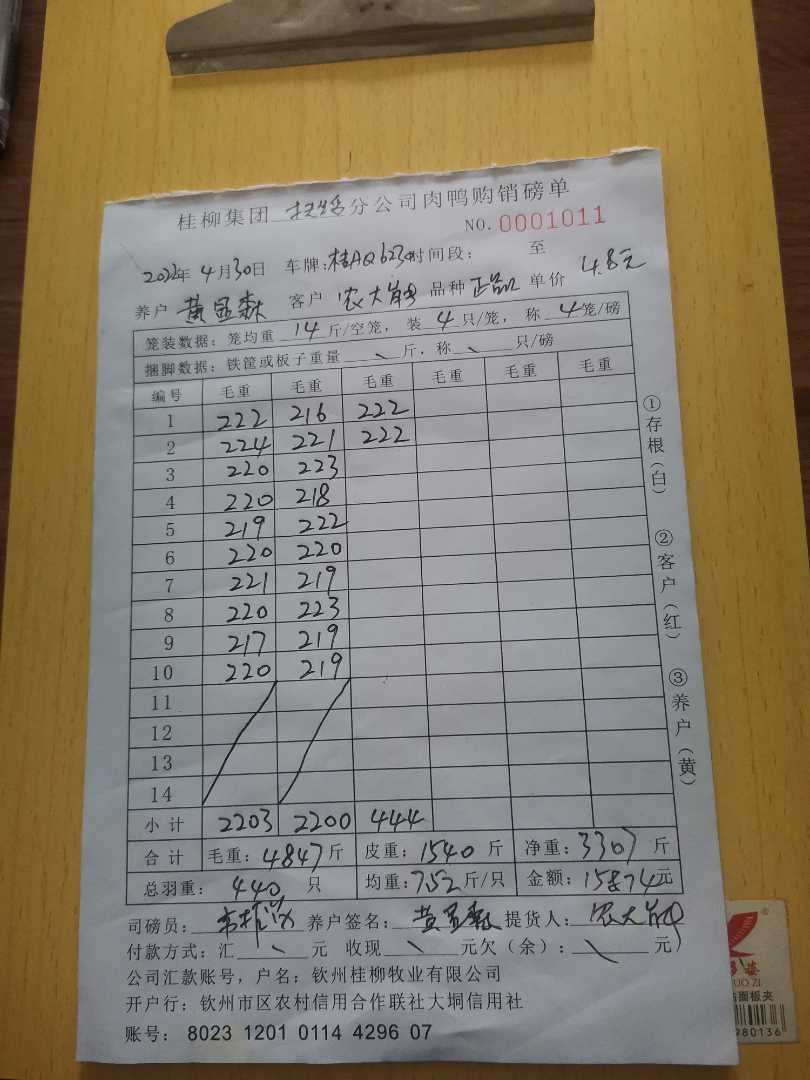 桂柳集团 分公司肉鸭购销磅单
NO. 0001011
2022年 4月30日 车牌:桂AQ623 时间段: 至
养户 黄显森 客户 农大 品种 正品 单价 4.8元
笼装数据: 笼均重 14 斤/空笼, 装 4 只/笼, 称 4 笼/磅
捆脚数据: 铁筐或板子重量 斤, 称 只/磅
编号 毛重 毛重 毛重 毛重 毛重 毛重
1 222 216 222
2 224 221 222
3 220 223
4 220 218
5 219 222
6 220 220
7 221 219
8 220 223
9 217 219
10 220 219
11
12
13
14
小计 2203 2200 444
合计 毛重: 4847 斤 皮重: 1540 斤 净重: 3307 斤
总羽重: 440 只 均重: 7.52 斤/只 金额: 15874 元
司磅员: 养户签名: 黄显森 提货人: 农大
付款方式: 汇 元 收现 元欠(余): 元
公司汇款账号, 户名: 钦州桂柳牧业有限公司
开户行: 钦州市区农村信用合作联社大垌信用社
账号: 8023 1201 0114 4296 07
①存根(白)
②客户(红)
③养户(黄)
UO ZI
面板夹
980136